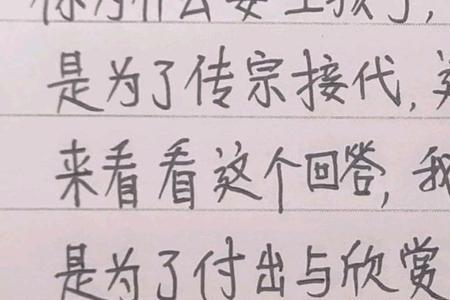 你为什么要生孩子,
是为了传宗接代,
来看看这个回答,我
是为了付出与欣赏